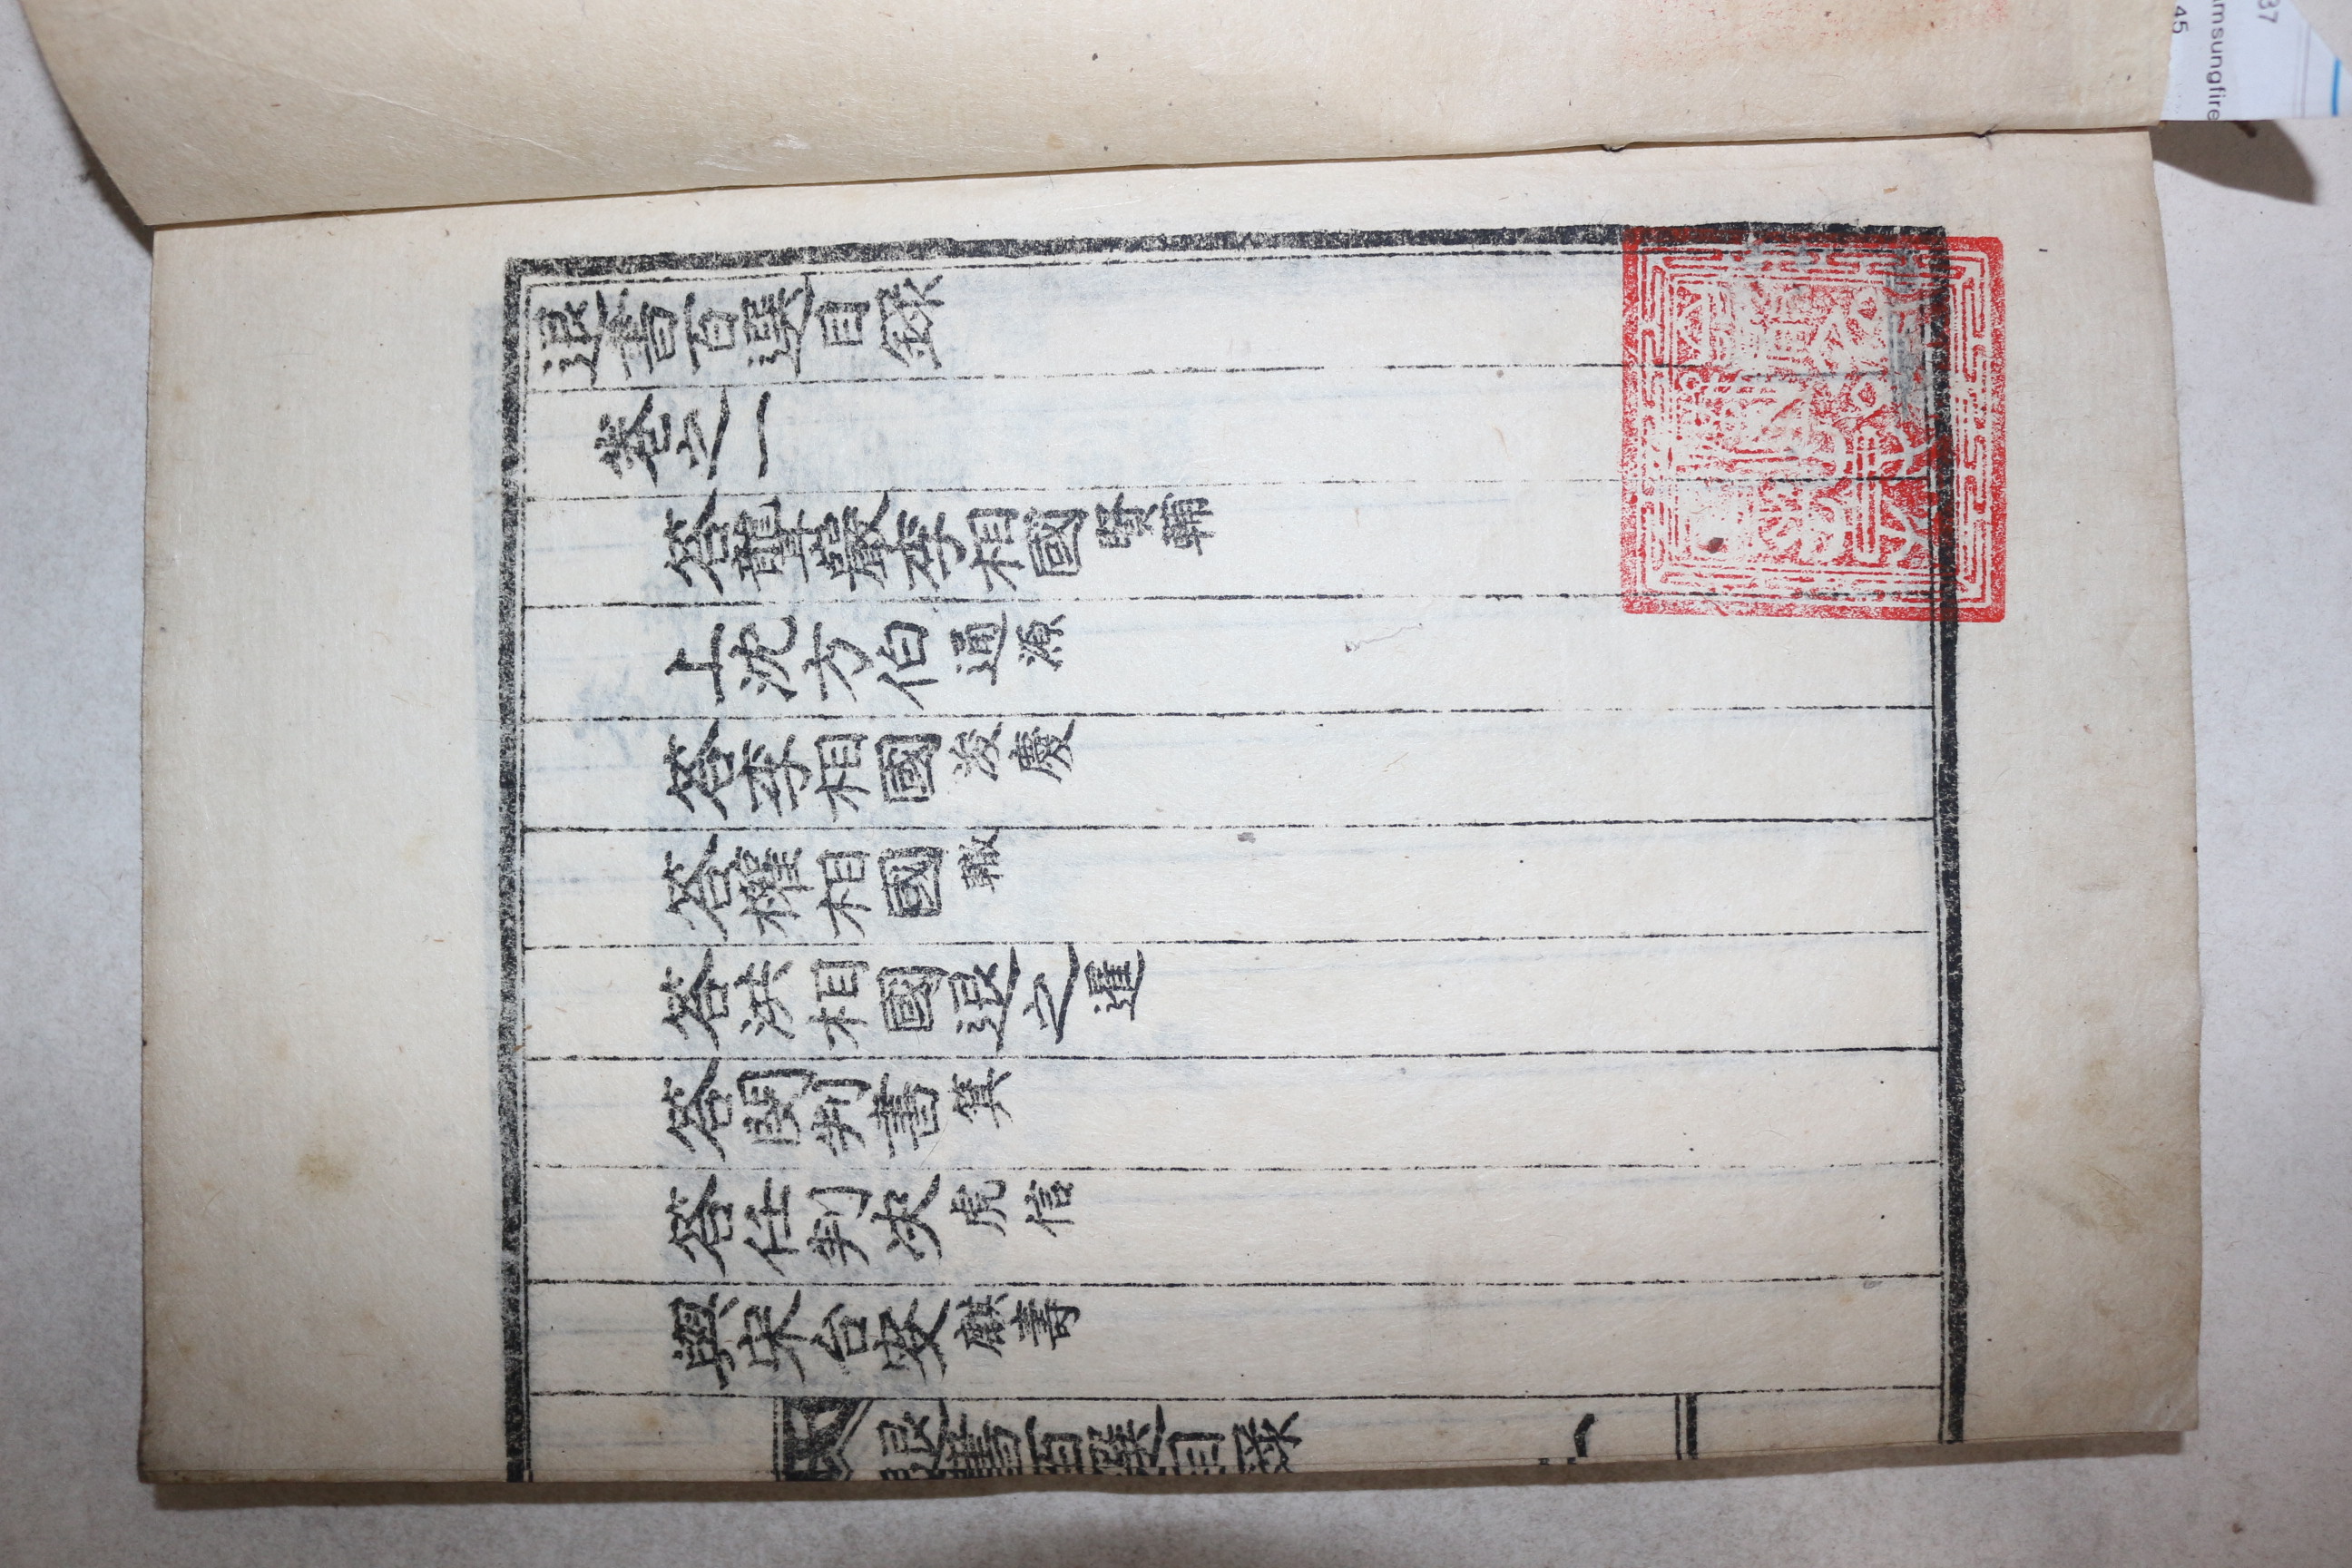 退書百選目錄
卷之一
答聾巖李相國賢輔
上沈方伯通源
答李相國浚慶
答權相國轍
答洪相國退之暹
答閔判書箕
答任判決虎臣
與宋台叟麒壽
退書百選目錄 一
msungfire
37
45